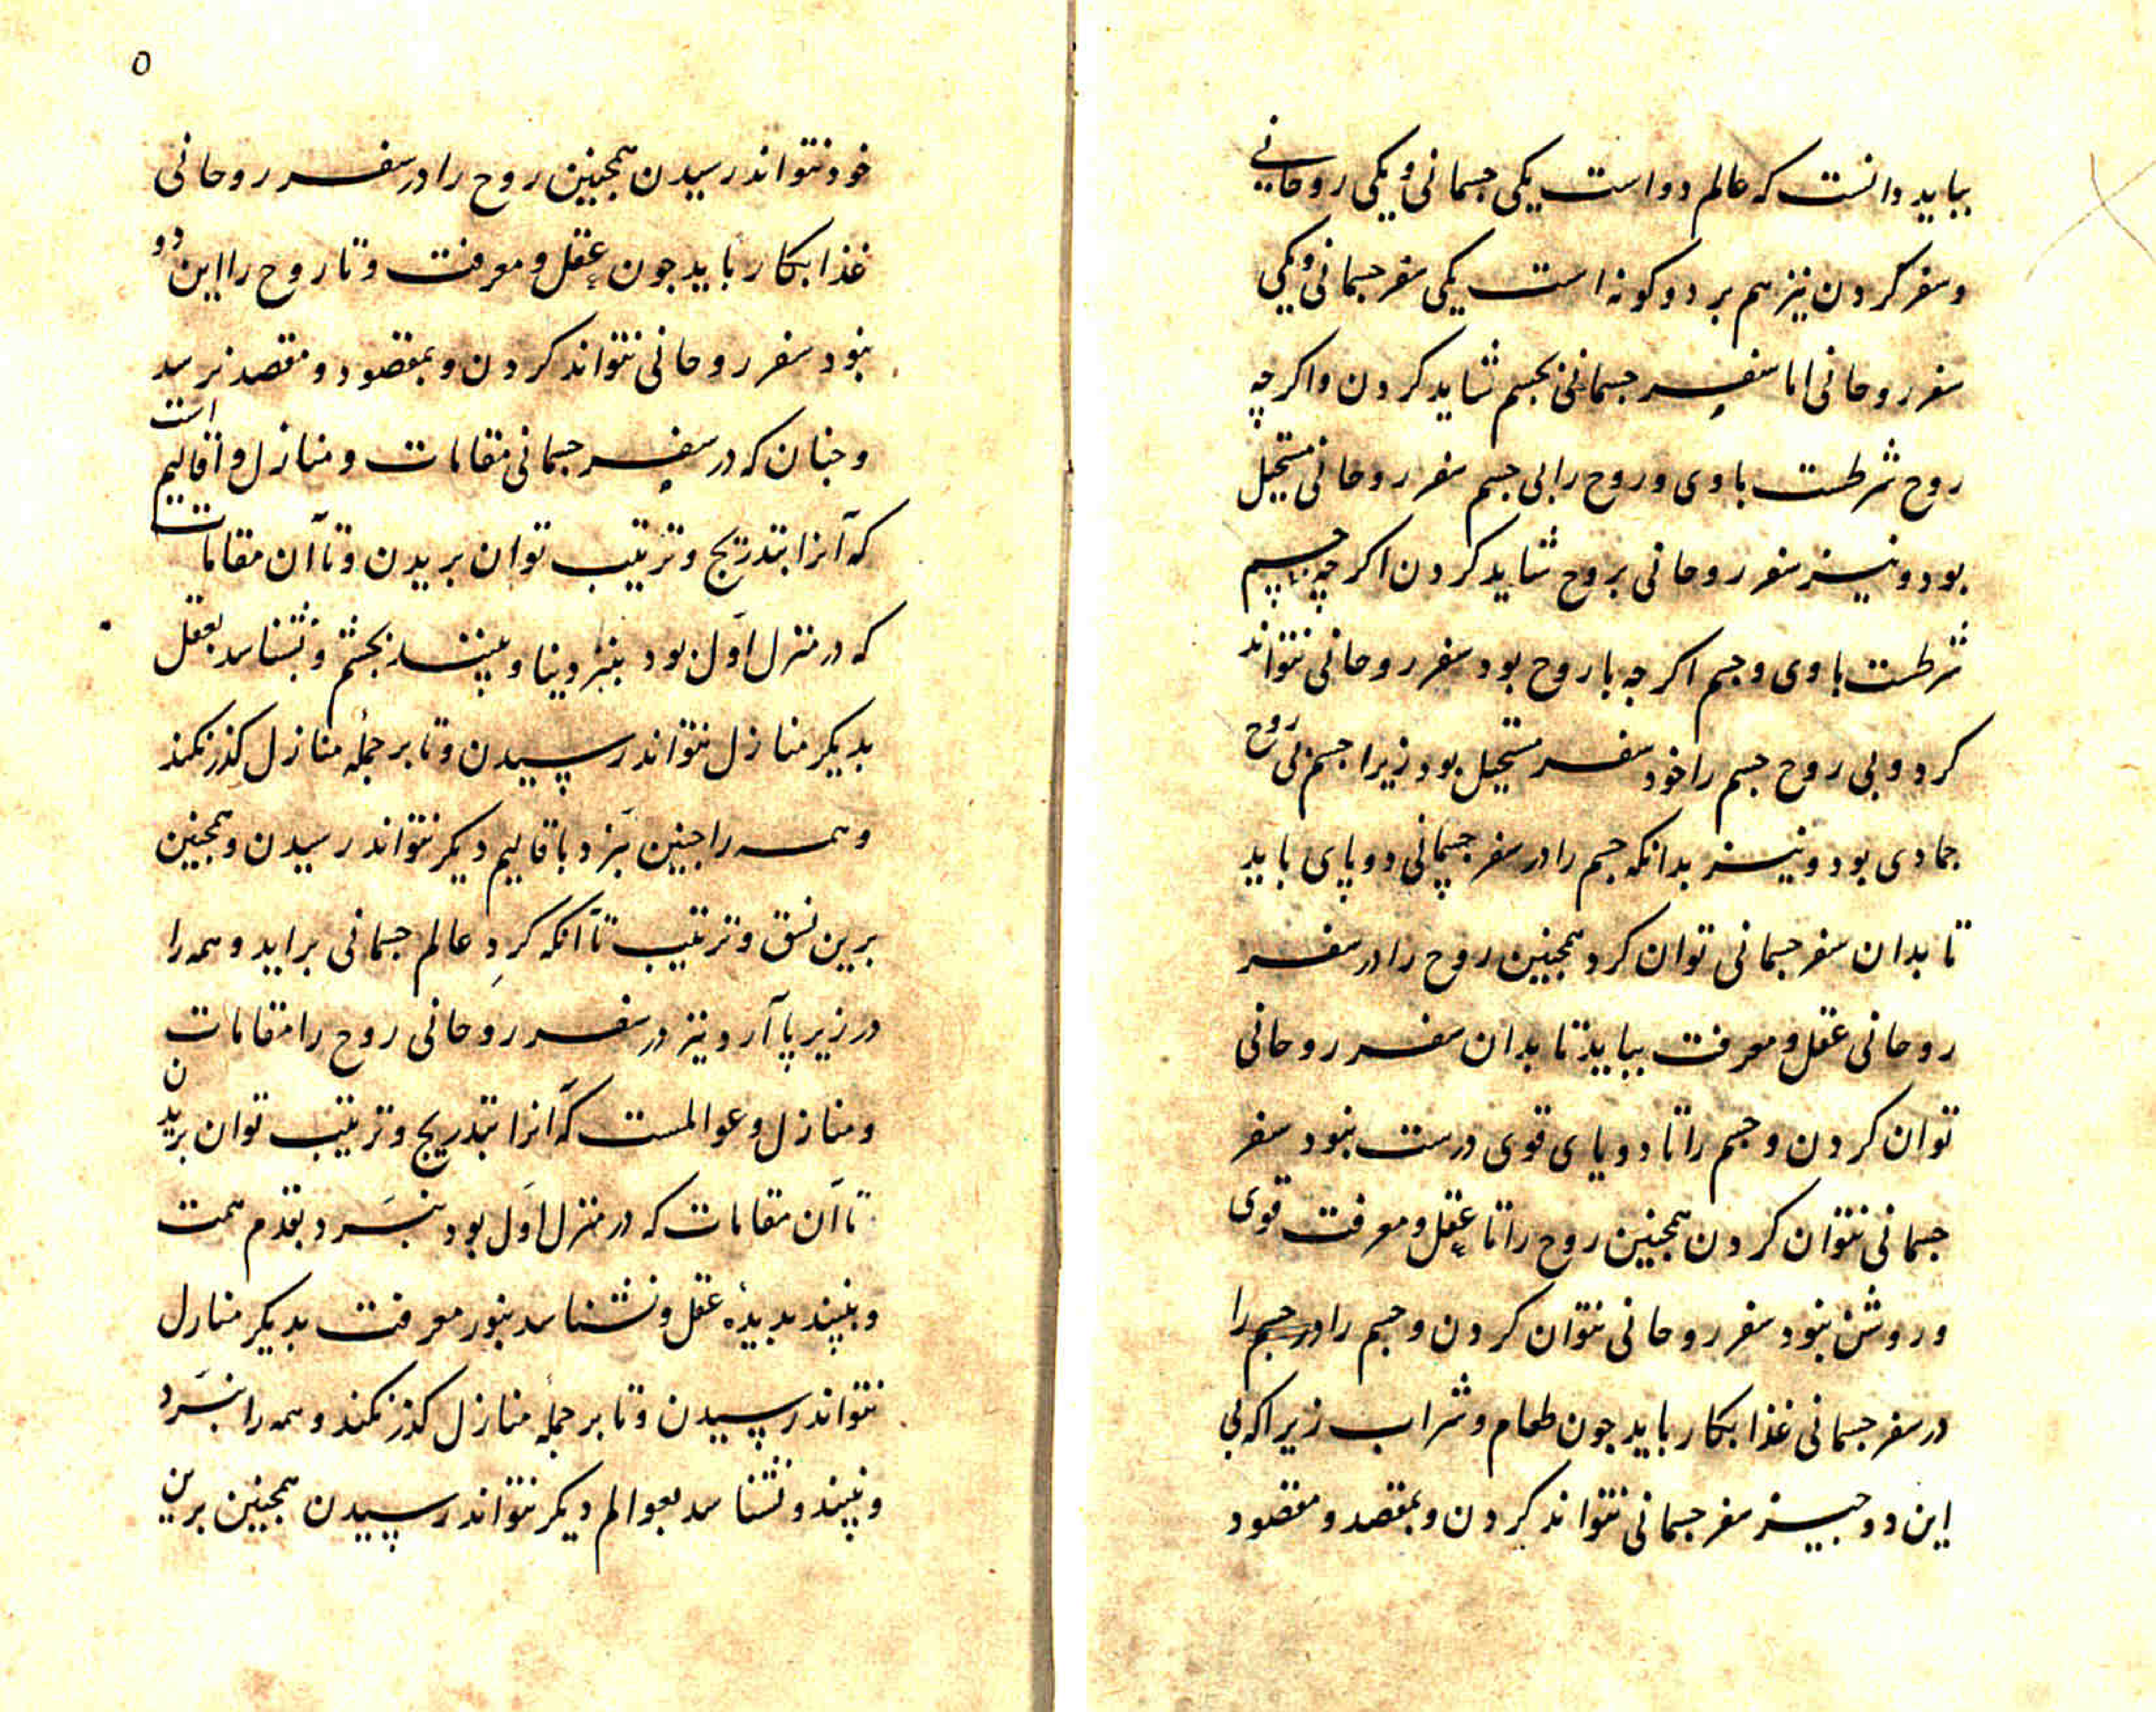 بباید دانست که عالم دو است یکی جسمانی و یکی روحانی
و سفر کردن نیز هم بر دو کونه است یکی سفر جسمانی و یکی
سفر روحانی اما سفر جسمانی بجسم شاید کردن و اکرچه
روح شرطست با وی و روح را بی جسم سفر روحانی مستحیل
بود و نیز سفر روحانی بروح شاید کردن اکرچه جسم
شرطست با وی و جسم اکرچه با روح بود سفر روحانی نتواند
کرد و بی روح جسم را خود سفر مستحیل بود زیرا جسم بی روح
جمادی بود و نیز بدانکه جسم را در سفر جسمانی دو پای باید
تا بدان سفر جسمانی توان کرد همجنین روح را در سفر
روحانی عقل و معرفت بباید تا بدان سفر روحانی
توان کردن و جسم را تا دو پای قوی درست نبود سفر
جسمانی نتوان کردن همجنین روح را تا عقل و معرفت قوی
و روشن نبود سفر روحانی نتوان کردن و جسم را در جسم را
در سفر جسمانی غذا بکار باید جون طعام و شراب زیرا که بی
این دو جیز سفر جسمانی نتواند کردن و بمقصد و مقصود
٥
خود نتواند رسیدن همجنین روح را در سفر روحانی
غذا بکار باید جون عقل و معرفت و تا روح را این دو
نبود سفر روحانی نتواند کردن و بمقصود و مقصد نرسد
و جنان که در سفر جسمانی مقامات و منازل و اقالیم است
که آنرا بتدریج و ترتیب توان بریدن و تا آن مقامات
که در منزل اول بود نبرد بپا و نبیند بجشم و نشناسد بعقل
بدیکر منازل نتواند رسیدن و تا بر جمله منازل کذر نکند
و همه را جنین نبرد باقالیم دیکر نتواند رسیدن و همجنین
برین نسق و ترتیب تا آنکه کرد عالم جسمانی براید و همه را
در زیر پا آرد و نیز در سفر روحانی روح را مقامات
و منازل و عوالمست که آنرا بتدریج و ترتیب توان بریدن
تا آن مقامات که در منزل اول بود نبسرد بقدم همت
و نبیند بدیدهٔ عقل و نشناسد بنور معرفت بدیکر منازل
نتواند رسیدن و تا بر جمله منازل کذر نکند و همه را نبسرد
و نبیند و نشناسد بعوالم دیکر نتواند رسیدن همجنین برین